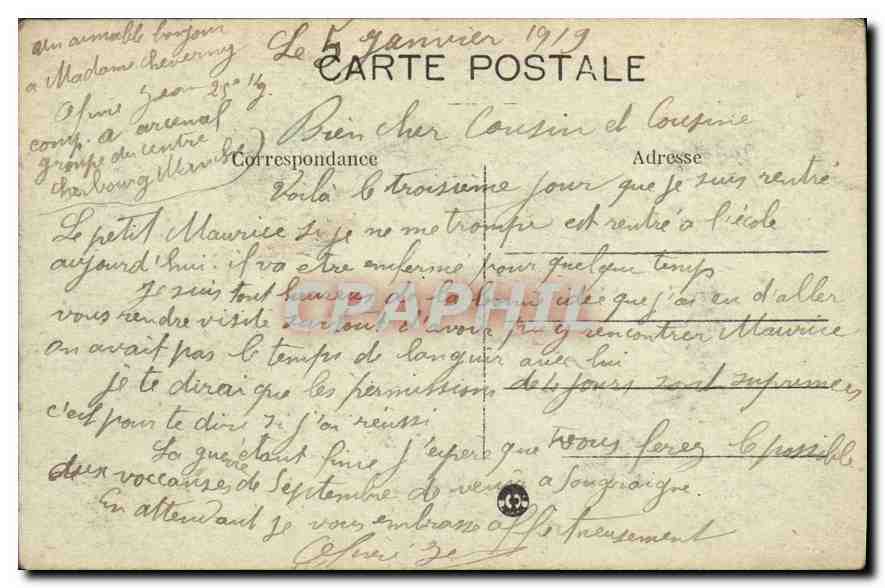 un aimable bonjour
a Madame Cheverny
Jean 25e
comp. a arsenal
groupe du centre
Cherbourg Manche
Le 5 Janvier 1919
CARTE POSTALE
Bien cher Cousin et Cousine
Correspondance
Adresse
Voilà le troisième jour que je suis rentré
Le petit Maurice si je ne me trompe est rentré a l'école
aujourd'hui. il va être enfermé pour quelque temps
Je suis tout heureux de la bonne idée que j'ai eu d'aller
vous rendre visite surtout d'avoir pu y rencontrer Maurice
on avait pas le temps de languir avec lui
je te dirai que les permissions de 4 jours sont suprimées
c'est pour te dire si j'ai réussi
La guerre étant finie j'espere que vous ferez le possible
aux voccanses de Septembre de venir a Sougraigne.
En attendant je vous embrasse affectueusement
CPAPHIL